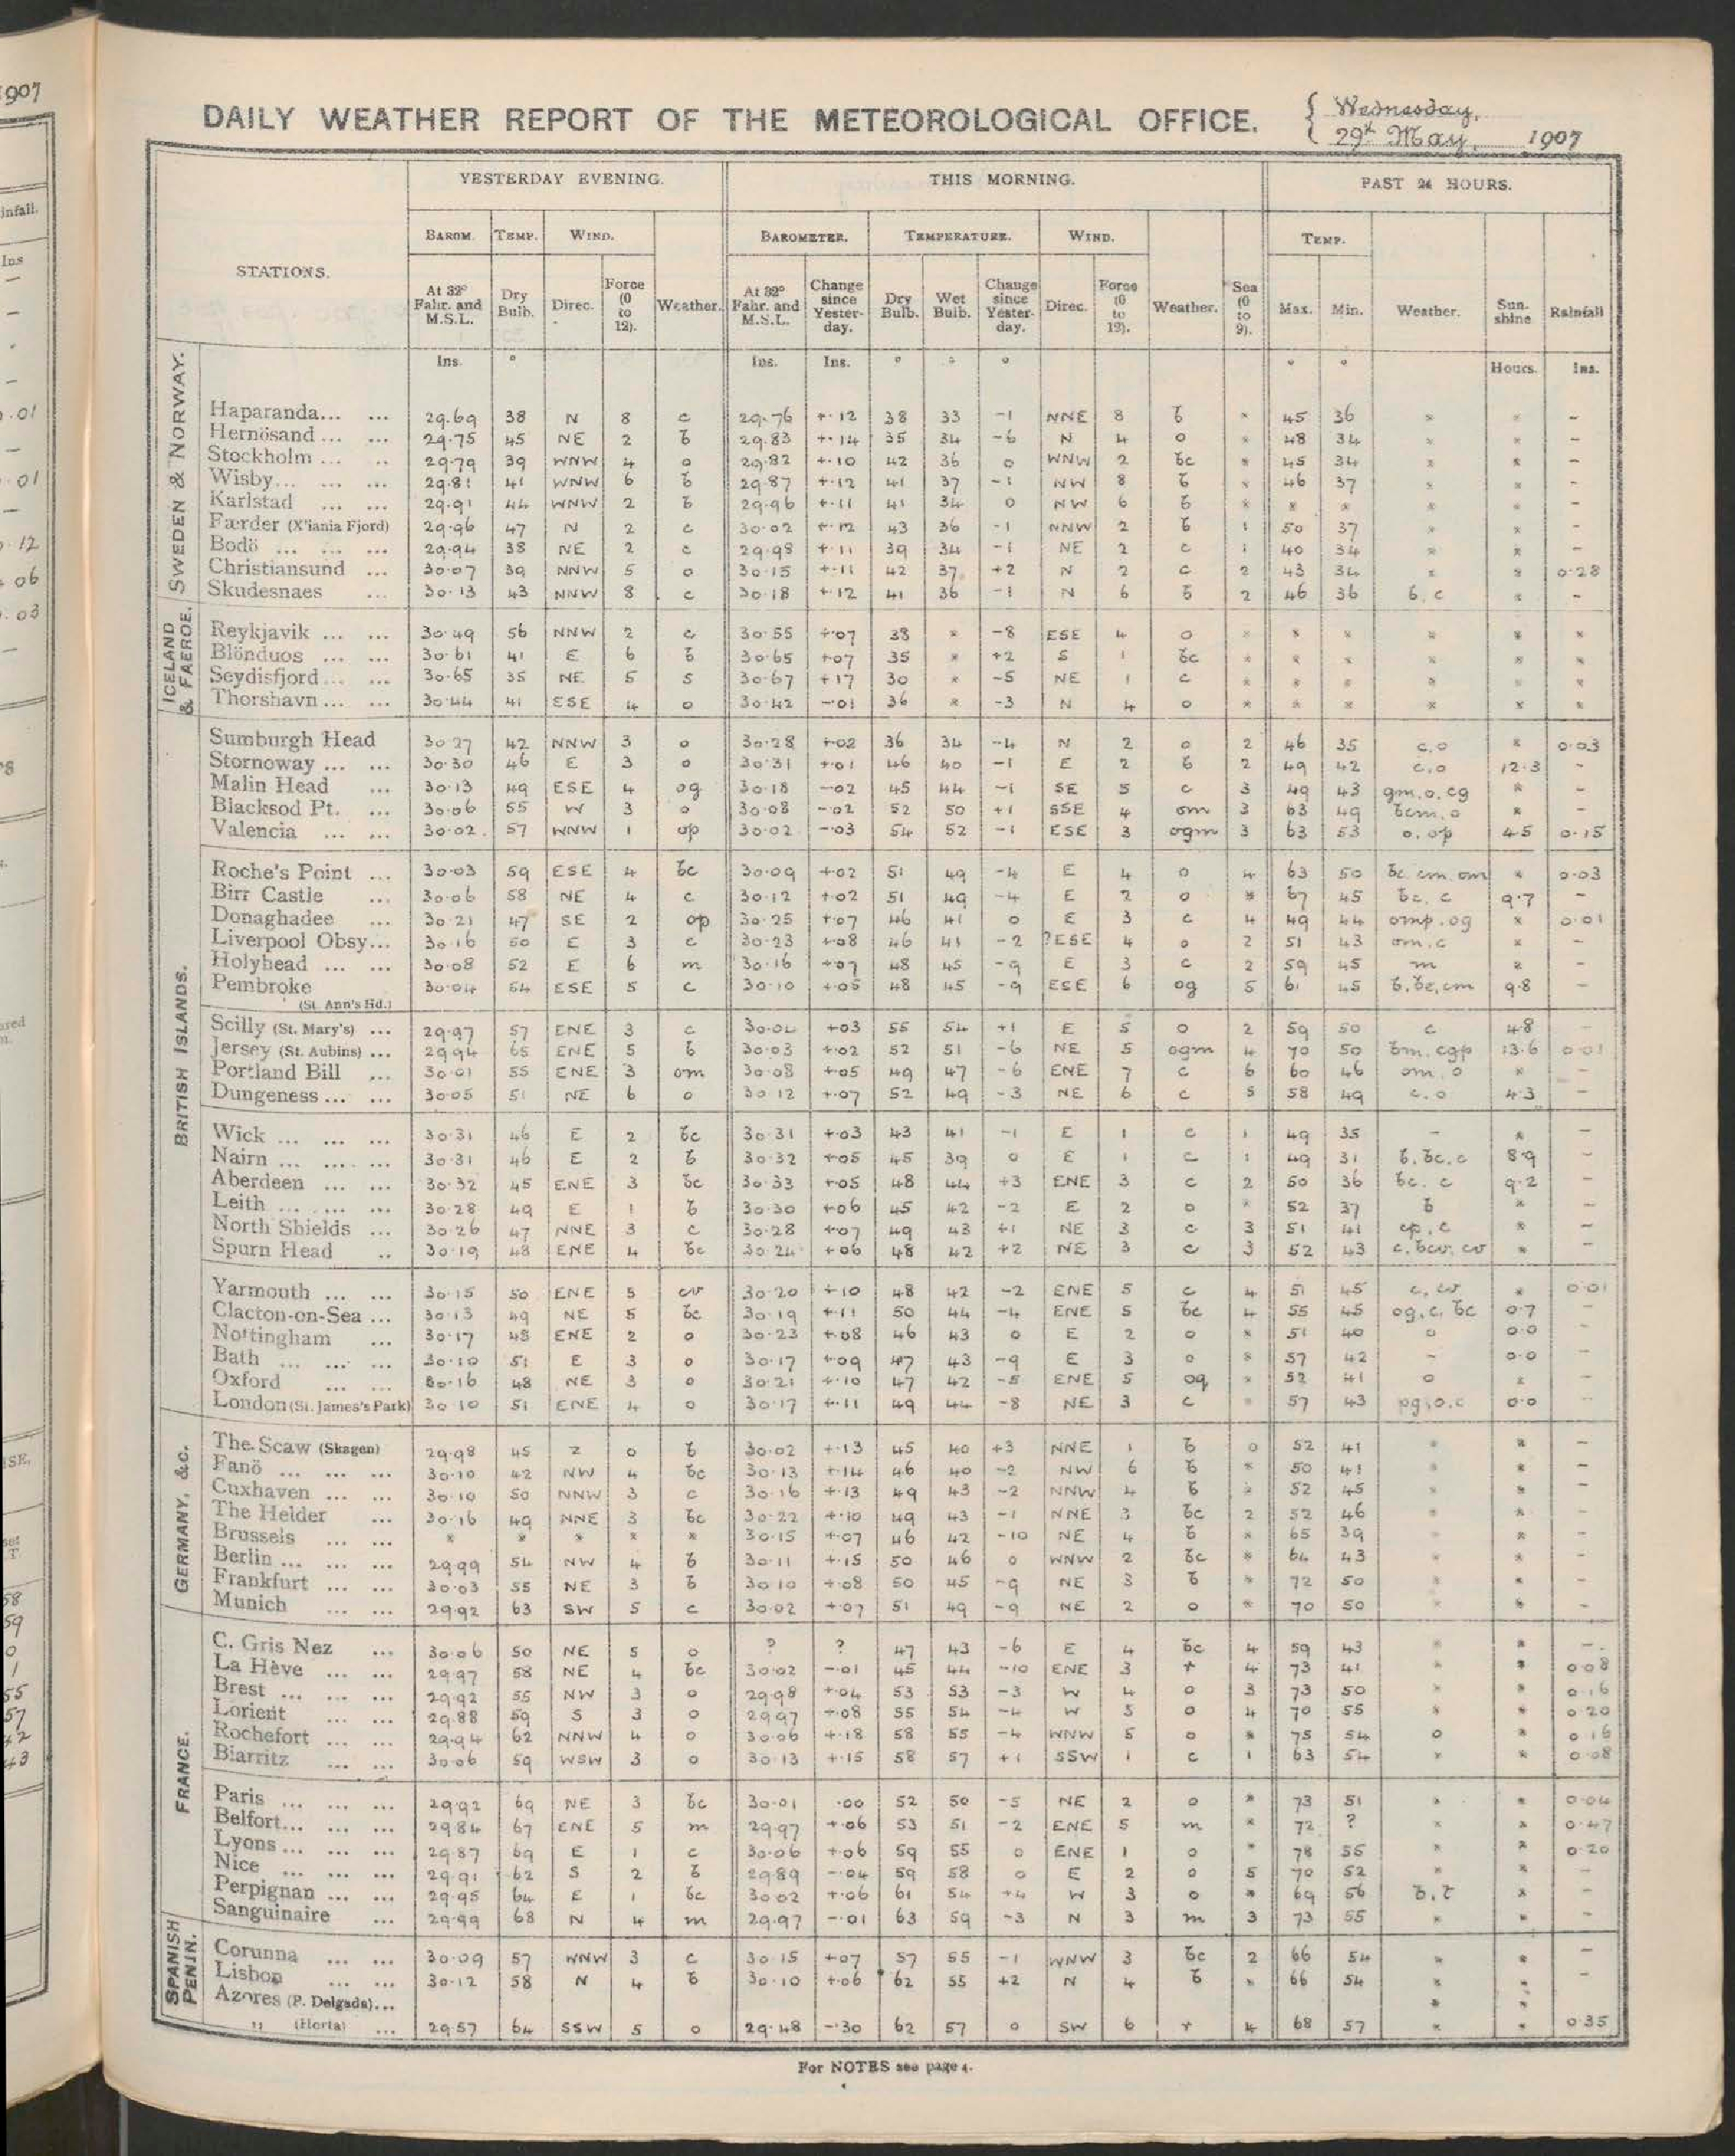 1907
DAILY WEATHER REPORT OF THE METEOROLOGICAL OFFICE.
Wednesday,
29th May, 1907
YESTERDAY EVENING. THIS MORNING. PAST 24 HOURS.
STATIONS. BAROM. TEMP. WIND. Weather. BAROMETER. TEMPERATURE. WIND. Weather. Sea (0 to 9). TEMP. Weather. Sunshine Rainfall
At 32° Fahr. and M.S.L. Dry Bulb. Direc. Force (0 to 12). At 32° Fahr. and M.S.L. Change since Yesterday. Dry Bulb. Wet Bulb. Change since Yesterday. Direc. Force (0 to 12). Max. Min.
Ins. ° Ins. Ins. ° ° ° ° ° Hours. Ins.
SWEDEN & NORWAY.
Haparanda... ... 29.69 38 N 8 c 29.76 +.12 38 33 -1 NNE 8 b * 45 36 * * -
Hernösand ... ... 29.75 45 NE 2 b 29.83 +.14 35 34 -6 N 4 o * 48 34 * * -
Stockholm ... .. 29.79 39 WNW 4 o 29.82 +.10 42 36 0 WNW 2 bc * 45 34 * * -
Wisby... ... ... 29.81 41 WNW 6 b 29.87 +.12 41 37 -1 NW 8 b * 46 37 * * -
Karlstad ... ... 29.91 44 WNW 2 b 29.96 +.11 41 34 0 NW 6 b * * * * * -
Færder (X'iania Fjord) 29.96 47 N 2 c 30.02 +.12 43 36 -1 NNW 2 b 1 50 37 * * -
Bodö ... ... ... 29.94 38 NE 2 c 29.98 +.11 39 34 -1 NE 2 c 1 40 34 * * -
Christiansund ... 30.07 39 NNW 5 o 30.15 +.11 42 37 +2 N 2 c 2 43 34 * * 0.28
Skudesnaes ... 30.13 43 NNW 8 c 30.18 +.12 41 36 -1 N 6 b 2 46 36 b, c * -
ICELAND & FAEROE.
Reykjavik ... ... 30.49 56 NNW 2 c 30.55 +.07 38 * -8 ESE 4 o * * * * * *
Blönduos ... ... 30.61 41 E 6 b 30.65 +.07 35 * +2 S 1 bc * * * * * *
Seydisfjord ... ... 30.65 35 NE 5 s 30.67 +.17 30 * -5 NE 1 c * * * * * *
Thorshavn ... ... 30.44 41 ESE 4 o 30.42 -.01 36 * -3 N 4 o * * * * * *
BRITISH ISLANDS.
Sumburgh Head 30.27 42 NNW 3 o 30.28 +.02 36 34 -4 N 2 o 2 46 35 c,o * 0.03
Stornoway ... ... 30.30 46 E 3 o 30.31 +.01 46 40 -1 E 2 b 2 49 42 c,o 12.3 -
Malin Head ... 30.13 49 ESE 4 og 30.18 -.02 45 44 -1 SE 5 c 3 49 43 gm,o,cg * -
Blacksod Pt. ... 30.06 55 W 3 o 30.08 -.02 52 50 +1 SSE 4 om 3 63 49 bcm,o * -
Valencia ... ... 30.02 57 WNW 1 op 30.02 -.03 54 52 -1 ESE 3 ogm 3 63 53 o,op 4.5 0.15
Roche's Point ... 30.03 59 ESE 4 bc 30.09 +.02 51 49 -4 E 4 o 4 63 50 bc cm,om * 0.03
Birr Castle ... 30.06 58 NE 4 c 30.12 +.02 51 49 -4 E 2 o * 67 45 bc, c 9.7 -
Donaghadee ... 30.21 47 SE 2 op 30.25 +.07 46 41 0 E 3 c 4 49 44 omp,og * 0.01
Liverpool Obsy... 30.16 50 E 3 c 30.23 +.08 46 41 -2 ?ESE 4 o 2 51 43 om,c * -
Holyhead ... ... 30.08 52 E 6 m 30.16 +.07 48 45 -9 E 3 c 2 59 45 m * -
Pembroke (St. Ann's Hd.) 30.04 54 ESE 5 c 30.10 +.05 48 45 -9 ESE 6 og 5 61 45 b,bc,cm 9.8 -
Scilly (St. Mary's) ... 29.97 57 ENE 3 c +.03 55 54 +1 E 5 o 2 59 50 c 4.8
Jersey (St. Aubins) ... 29.94 65 ENE 5 b 30.03 +.02 52 51 -6 NE 5 ogm 4 70 50 bm,cgp 13.6 0.01
Portland Bill ... 30.01 55 ENE 3 om 30.08 +.05 49 47 -6 ENE 7 c 6 60 46 om,o * -
Dungeness ... ... 30.05 51 NE 6 o 30.12 +.07 52 49 -3 NE 6 c 5 58 49 c,o 4.3 -
Wick ... ... ... 30.31 46 E 2 bc 30.31 +.03 43 41 -1 E 1 c 1 49 35 - * -
Nairn ... ... ... 30.31 46 E 2 b 30.32 +.05 45 39 0 E 1 c 1 49 31 b,bc,c 8.9 -
Aberdeen ... ... 30.32 45 ENE 3 bc 30.33 +.05 48 44 +3 ENE 3 c 2 50 36 bc, c 9.2 -
Leith ... ... ... 30.28 49 E 1 b 30.30 +.06 45 42 -2 E 2 o * 52 37 b * -
North Shields ... 30.26 47 NNE 3 c 30.28 +.07 49 43 +1 NE 3 c 3 51 41 cp,c * -
Spurn Head .. 30.19 48 ENE 4 bc 30.24 +.06 48 42 +2 NE 3 c 3 52 43 c,bcv,cv * -
Yarmouth ... ... 30.15 50 ENE 5 cv 30.20 +.10 48 42 -2 ENE 5 c 4 51 45 c,cv * 0.01
Clacton-on-Sea ... 30.13 49 NE 5 bc 30.19 +.11 50 44 -4 ENE 5 bc 4 55 45 og,c,bc 0.7 -
Nottingham ... 30.17 48 ENE 2 o 30.23 +.08 46 43 0 E 2 o * 51 40 o 0.0 -
Bath ... ... ... 30.10 51 E 3 o 30.17 +.09 47 43 -9 E 3 o * 57 42 - 0.0 -
Oxford ... ... 30.16 48 NE 3 o 30.21 +.10 47 42 -5 ENE 5 og * 52 41 o * -
London (St. James's Park) 30.10 51 ENE 4 o 30.17 +.11 49 44 -8 NE 3 c * 57 43 pg,o,c 0.0 -
GERMANY, &c.
The Scaw (Skagen) 29.98 45 Z 0 b 30.02 +.13 45 40 +3 NNE 1 b 0 52 41 * * -
Fanö ... ... ... 30.10 42 NW 4 bc 30.13 +.14 46 40 -2 NW 6 b * 50 41 * * -
Cuxhaven ... ... 30.10 50 NNW 3 c 30.16 +.13 49 43 -2 NNW 4 b * 52 45 * * -
The Helder ... 30.16 49 NNE 3 bc 30.22 +.10 49 43 -1 NNE 3 bc 2 52 46 * * -
Brussels ... ... * * * * * 30.15 +.07 46 42 -10 NE 4 b * 65 39 * * -
Berlin ... ... ... 29.99 54 NW 4 b 30.11 +.15 50 46 0 WNW 2 bc * 64 43 * * -
Frankfurt ... ... 30.03 55 NE 3 b 30.10 +.08 50 45 -9 NE 3 b * 72 50 * * -
Munich ... ... 29.92 63 SW 5 c 30.02 +.07 51 49 -9 NE 2 o * 70 50 * * -
FRANCE.
C. Gris Nez ... 30.06 50 NE 5 o ? ? 47 43 -6 E 4 bc 4 59 43 * * -
La Hève ... ... 29.97 58 NE 4 bc 30.02 -.01 45 44 -10 ENE 3 r 4 73 41 * * 0.08
Brest ... ... ... 29.92 55 NW 3 o 29.98 +.04 53 53 -3 W 4 o 3 73 50 * * 0.16
Lorient ... ... 29.88 59 S 3 o 29.97 +.08 55 54 -4 W 5 o 4 70 55 * * 0.20
Rochefort ... ... 29.94 62 NNW 4 o 30.06 +.18 58 55 -4 WNW 5 o * 75 54 o * 0.16
Biarritz ... ... 30.06 59 WSW 3 o 30.13 +.15 58 57 +1 SSW 1 c 1 63 54 * * 0.08
Paris ... ... ... 29.92 69 NE 3 bc 30.01 .00 52 50 -5 NE 2 o * 73 51 * * 0.04
Belfort... ... ... 29.84 67 ENE 5 m 29.97 +.06 53 51 -2 ENE 5 m * 72 ? * * 0.47
Lyons ... ... ... 29.87 69 E 1 c 30.06 +.06 59 55 0 ENE 1 o * 78 55 * * 0.20
Nice ... ... ... 29.91 62 S 2 b 29.89 -.04 59 58 0 E 2 o 5 70 52 * * -
Perpignan ... ... 29.95 64 E 1 bc 30.02 +.06 61 54 +4 W 3 o * 69 56 b,t * -
Sanguinaire ... 29.99 68 N 4 m 29.97 -.01 63 59 -3 N 3 m 3 73 55 * * -
SPANISH PENIN.
Corunna ... ... 30.09 57 WNW 3 c 30.15 +.07 57 55 -1 WNW 3 bc 2 66 54 * * -
Lisbon ... ... 30.12 58 N 4 b 30.10 +.06 62 55 +2 N 4 b * 66 54 * * -
Azores (P. Delgada)... * *
" (Horta) ... 29.57 64 SSW 5 o 29.48 -.30 62 57 0 SW 6 r 4 68 57 * * 0.35
For NOTES see page 4.